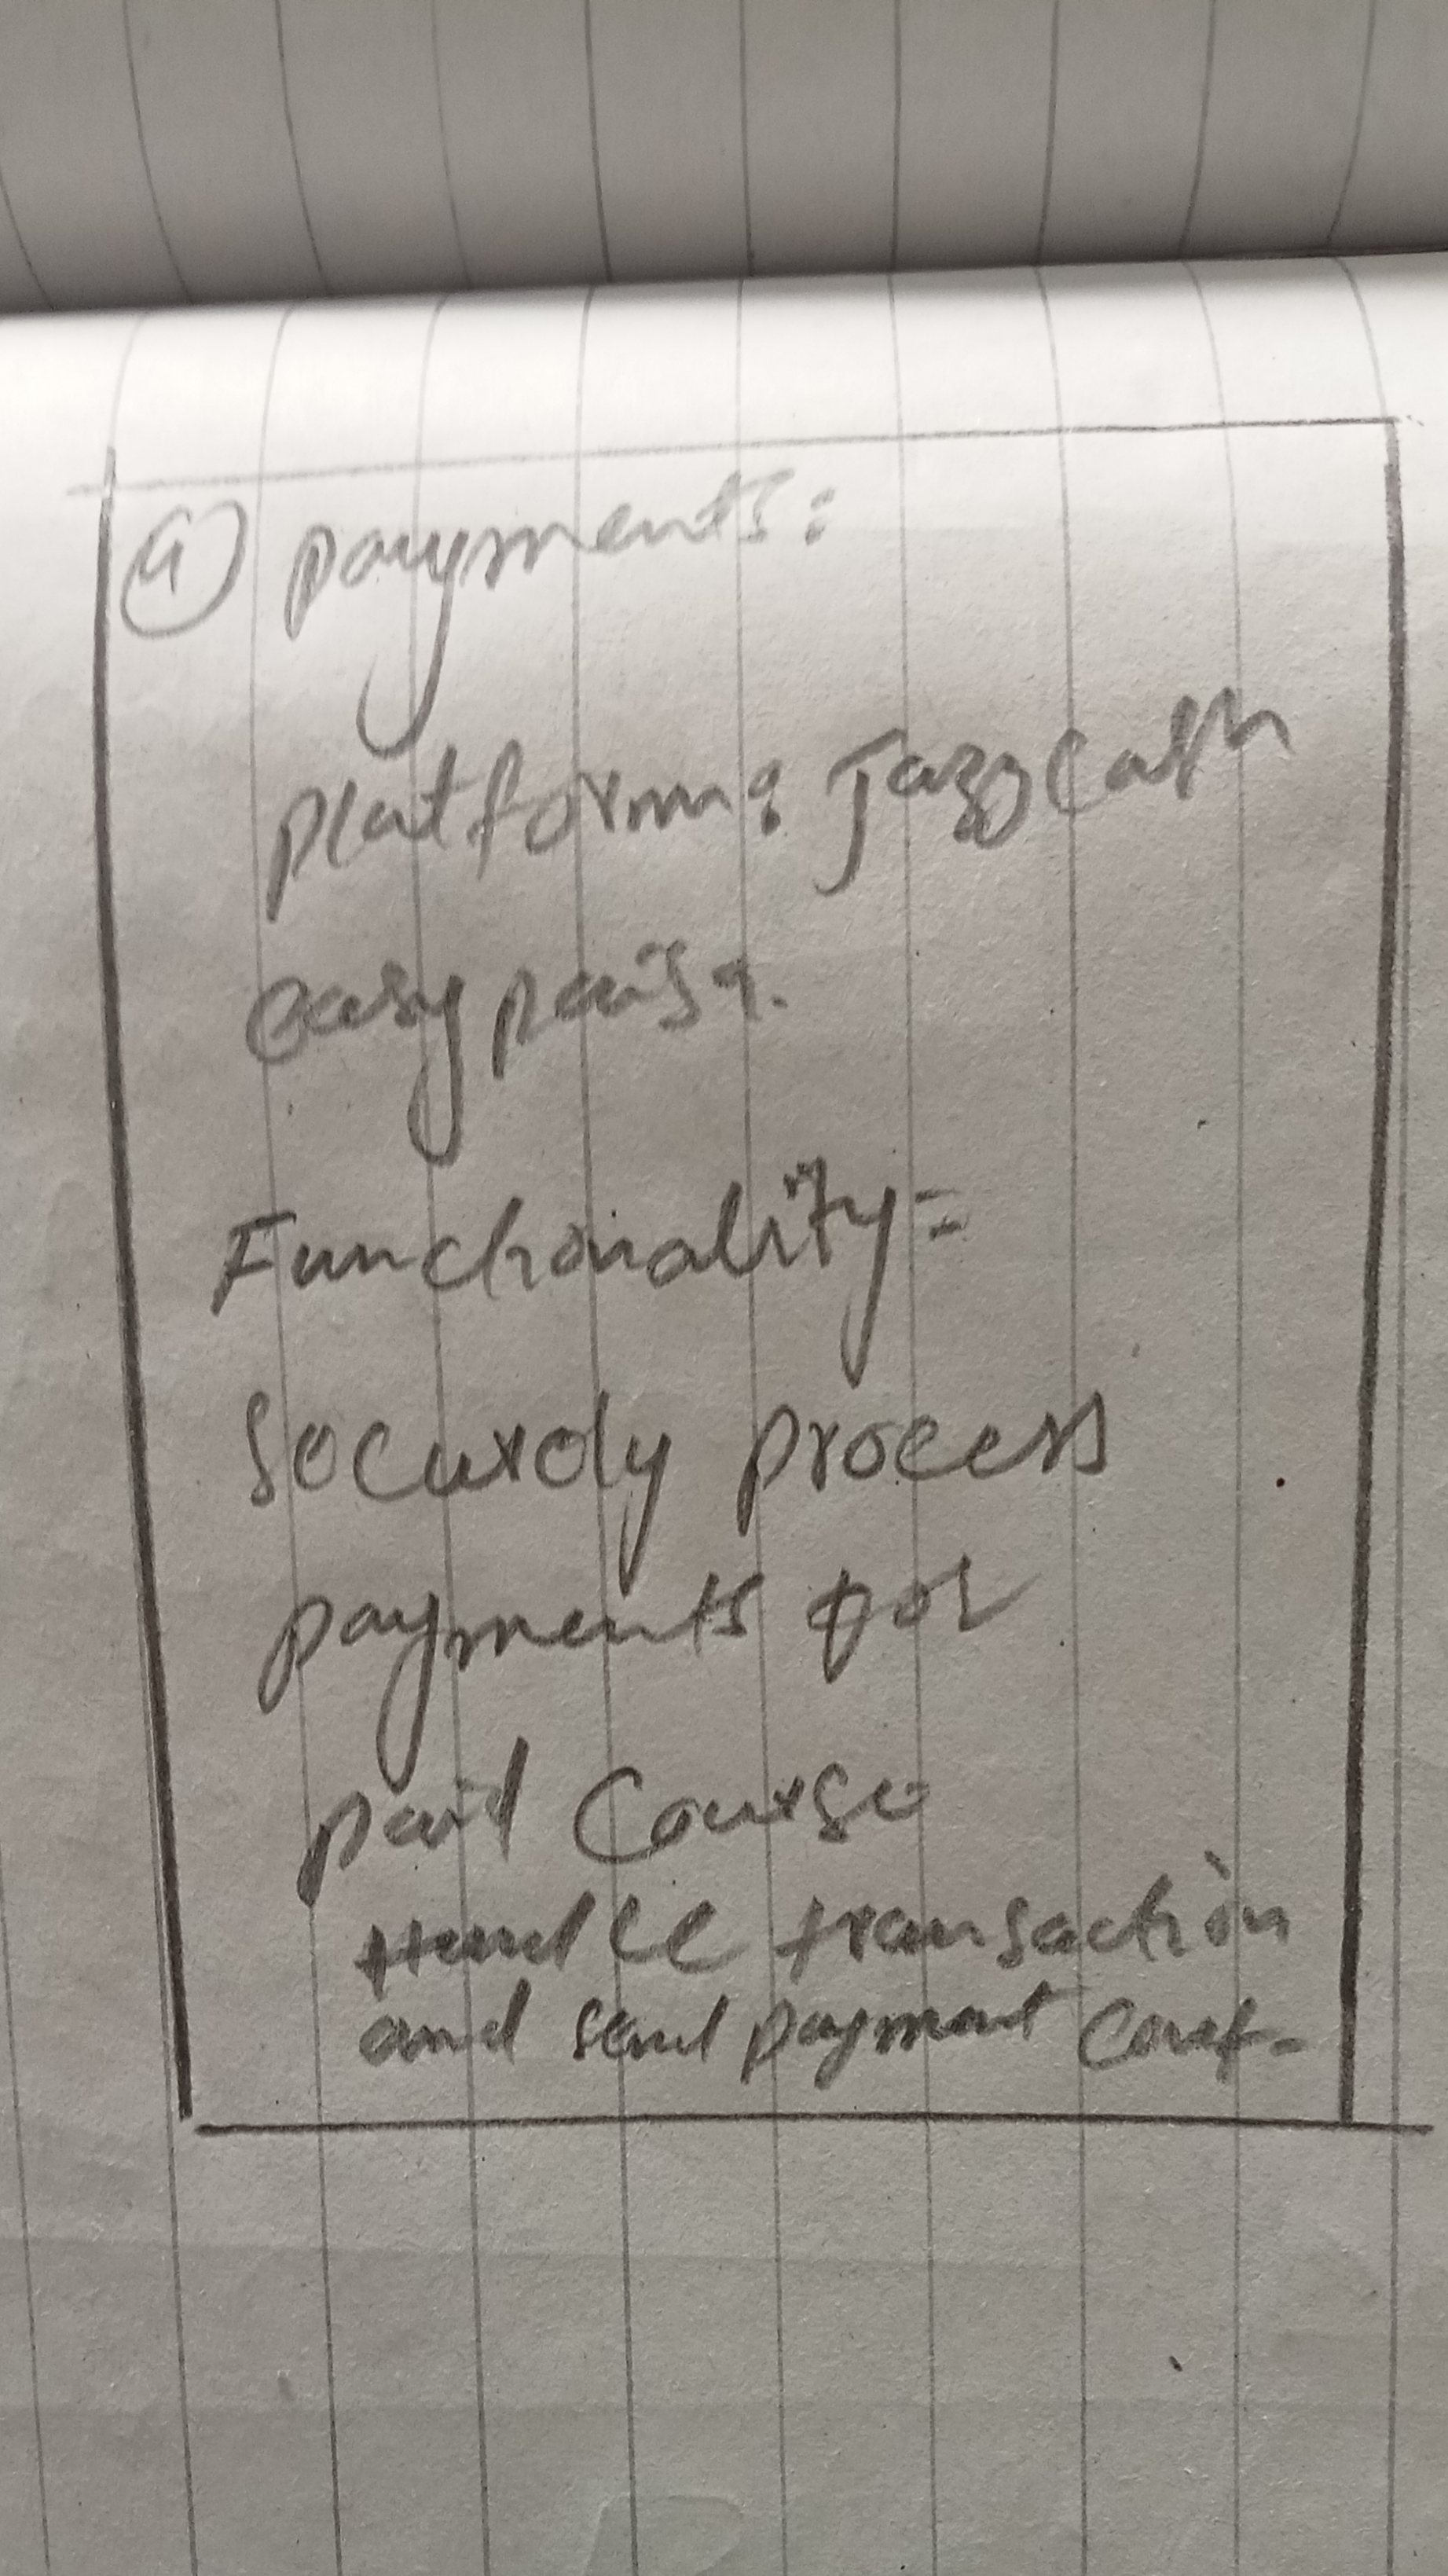 ④ payments:
platform: Jazzcash
easypaisa.
Functionality:
Securely process
payments for
paid Course
Handle transaction
and send payment conf.